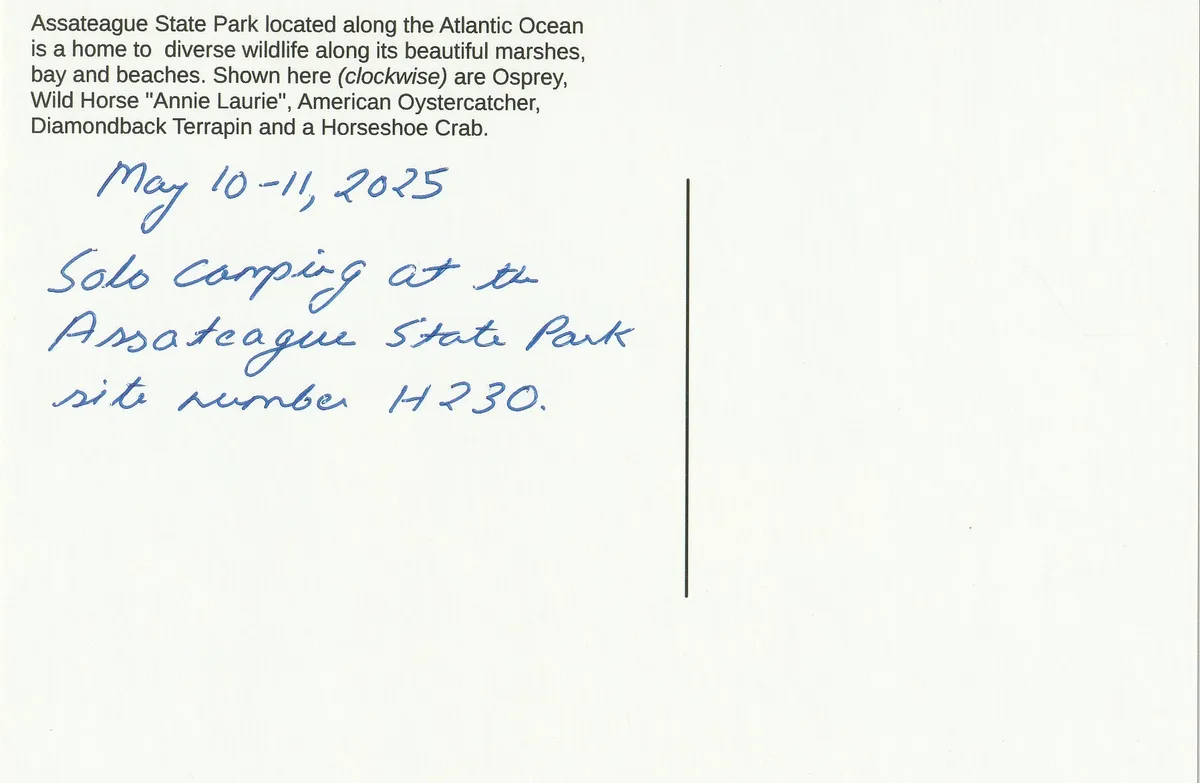 Assateague State Park located along the Atlantic Ocean
is a home to  diverse wildlife along its beautiful marshes,
bay and beaches. Shown here (clockwise) are Osprey,
Wild Horse "Annie Laurie", American Oystercatcher,
Diamondback Terrapin and a Horseshoe Crab.
May 10-11, 2025
Solo camping at the
Assateague State Park
site number H230.